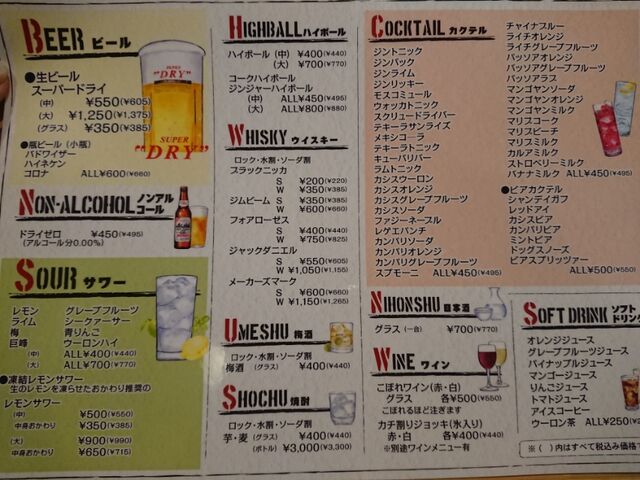 BEER ビール
●生ビール
スーパードライ
(中) ¥550(¥605)
(大) ¥1,250(¥1,375)
(グラス) ¥350(¥385)
SUPER
"DRY"
SUPER
"DRY"
●瓶ビール (小瓶)
バドワイザー
ハイネケン
コロナ ALL¥600(¥660)
NON-ALCOHOL ノンアルコール
ドライゼロ ¥450(¥495)
(アルコール分0.00%)
SOUR サワー
レモン グレープフルーツ
ライム シークァーサー
梅 青りんご
巨峰 ウーロンハイ
(中) ALL¥400(¥440)
(大) ALL¥700(¥770)
●凍結レモンサワー
生のレモンを凍らせたおかわり推奨の
レモンサワー
(中) ¥500(¥550)
中身おかわり ¥350(¥385)
(大) ¥900(¥990)
中身おかわり ¥650(¥715)
HIGHBALL ハイボール
ハイボール (中) ¥400(¥440)
(大) ¥700(¥770)
コークハイボール
ジンジャーハイボール
(中) ALL¥450(¥495)
(大) ALL¥800(¥880)
WHISKY ウイスキー
ロック・水割・ソーダ割
ブラックニッカ
S ¥200(¥220)
W ¥350(¥385)
ジムビーム S ¥350(¥385)
W ¥600(¥660)
フォアローゼス
S ¥400(¥440)
W ¥750(¥825)
ジャックダニエル
S ¥550(¥605)
W ¥1,050(¥1,155)
メーカーズマーク
S ¥600(¥660)
W ¥1,150(¥1,265)
UMESHU 梅酒
ロック・水割・ソーダ割
梅酒 (グラス) ¥400(¥440)
SHOCHU 焼酎
ロック・水割・ソーダ割
芋・麦 (グラス) ¥400(¥440)
(ボトル) ¥3,000(¥3,300)
COCKTAIL カクテル
ジントニック
ジンバック
ジンライム
ジンリッキー
モスコミュール
ウォッカトニック
スクリュードライバー
テキーラサンライズ
メキシコーラ
テキーラトニック
キューバリバー
ラムトニック
カシスウーロン
カシスオレンジ
カシスグレープフルーツ
カシスソーダ
ファジーネーブル
レゲエパンチ
カンパリソーダ
カンパリオレンジ
カンパリグレープフルーツ
スプモーニ ALL¥450(¥495)
チャイナブルー
ライチオレンジ
ライチグレープフルーツ
パッソアオレンジ
パッソアグレープフルーツ
パッソアラブ
マンゴヤンソーダ
マンゴヤンオレンジ
マンゴヤンミルク
マリブコーク
マリブピーチ
マリブミルク
カルアミルク
ストロベリーミルク
バナナミルク ALL¥450(¥495)
●ビアカクテル
シャンディガフ
レッドアイ
カシスビア
カンパリビア
ミントビア
ドッグズノーズ
ビアスプリッツァー
ALL¥500(¥550)
NIHONSHU 日本酒
グラス (一合) ¥700(¥770)
WINE ワイン
こぼれワイン(赤・白)
グラス 各¥500(¥550)
こぼれるほど注ぎます
カチ割りジョッキ(氷入り)
赤・白 各¥400(¥440)
※別途ワインメニュー有
SOFT DRINK ソフトドリンク
オレンジジュース
グレープフルーツジュース
パイナップルジュース
マンゴージュース
りんごジュース
トマトジュース
アイスコーヒー
ウーロン茶 ALL¥250(¥2
※( )内はすべて税込み価格で